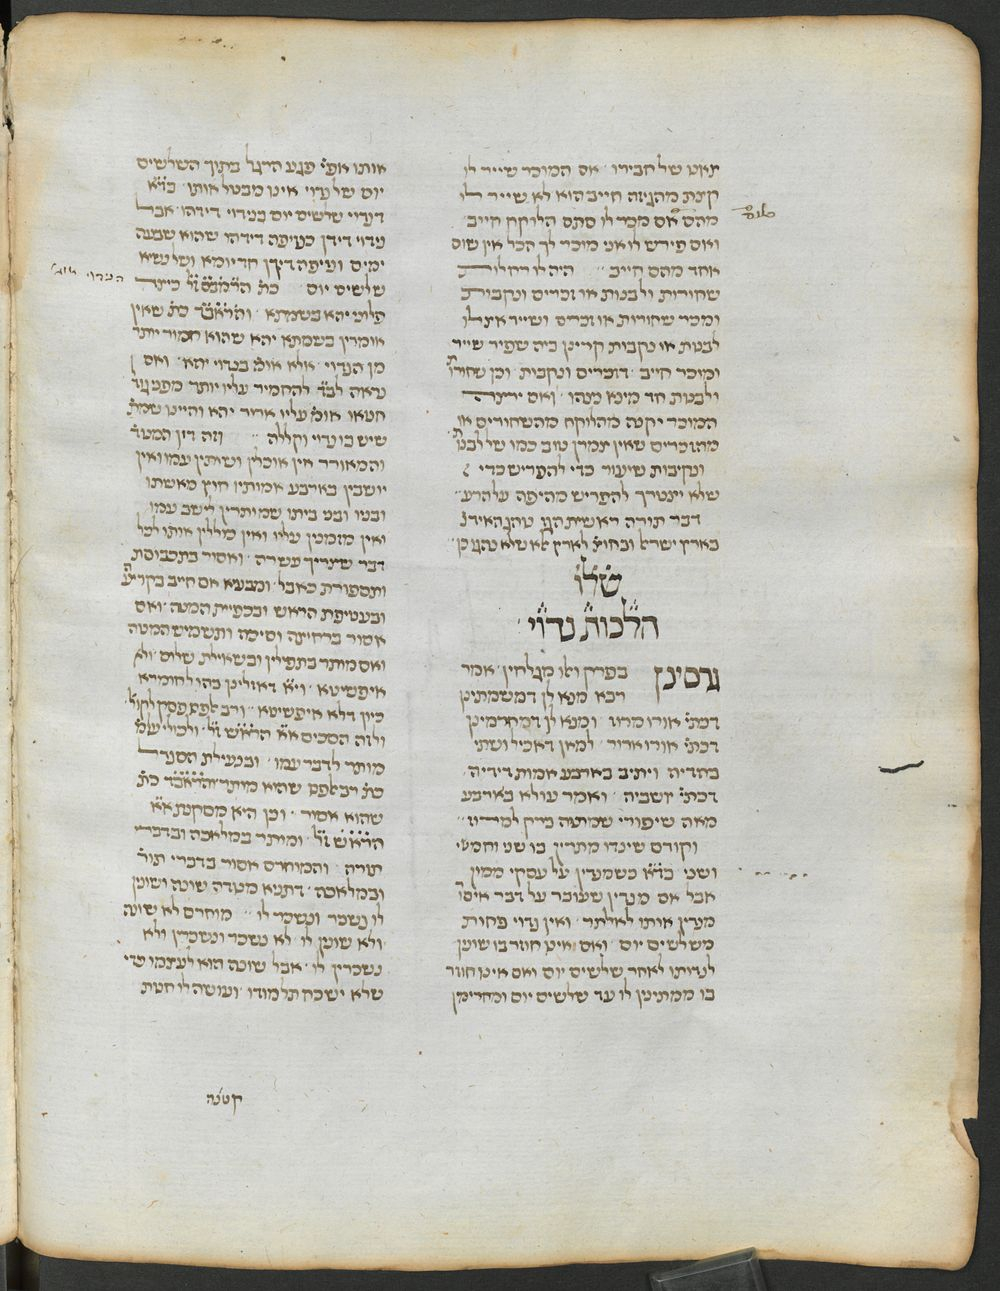 תאנו של חבירו׳ אם המוכר שייר לו
קצת מהגיזה חייב הוא לא שייר לו
מהם אם מכר לו סתם הלוקח חייב׳
ואם פירש לו אני מוכר לך הכל אין שום
אחד מהם חייב׃ היה לו רחלות
שחורות ולבנות או זכרים ונקבות
ומכר שחורות או זכרים ושייר אצלו
לבנות או נקבות קרינן ביה שפיר שייר
ומוכר חייב׳ דזכרים ונקבות וכן שחורות
ולבנות חד מינא נינהו׳ ואם ירצה
המוכר יקנה מהלוקח מהשחורים או
מהזכרים שאין צמרן טוב כמו של לבנות
ונקיבות שיעור כדי להפריש כדי
שלא יצטרך להפריש מהיפה על הרע׃
דבר תורה ראשית הגז נוהג האידנא
בארץ ישראל ובחוצה לארץ לא שלא נהגו כן׃
שלו
הלכות נדוי
גרסינן בפרק ואלו מגלחין׳ אמר
רבא מנא לן דמשמתינן
דכתי׳ אורו מרוז׳ ומנא לן דמחרמינן
דכתי׳ אורו ארור׳ למאן דאכיל ושתי
בהדיה ויתיב בארבע אמות דידיה׳
דכתי׳ יושביה׳ ואמר עולא בארבע
מאה שיפורי שמתיה ברק למרוז׃
וקודם שינדו מתרין בו שני וחמשי
ושני כד״א כשמנדין על עסקי ממון
אבל אם מנדין שעובר על דבר איסור
מנדין אותו לאלתר׳ ואין נדוי פחות
משלשים יום׳ ואם אינו חוזר בו שונין
לנדותו לאחר שלשים יום ואם אינו חוזר
בו ממתינין לו עד שלשים יום ומחרימין
אותו אפי׳ פגע הרגל בתוך השלשים
יום של נדוי אינו מבטל אותו׳ כד״א
דנדוי שלשים יום בנדוי דידהו׳ אבל
נדוי דידן כנזיפה דידהו שהוא שבעה
ימים ונזיפה דידן חד יומא ושל נשיא
שלשים יום׃ כת׳ הרמב״ם ז״ל כיצד
פלוני יהא בשמתא׳ והראב״ד כת׳ שאין
אומרין בשמתא יהא שהוא חמור יותר
מן הנדוי׳ אלא אומ׳ בנדוי יהא׳ ואם
נראה לב״ד להחמיר עליו יותר מפני גודל
חטאו אומ׳ עליו ארור יהא והיינו שמת׳
שיש בו נדוי וקללה׃ וזה דין המנודה
והמאורר אין אוכלין ושותין עמו ואין
יושבין בארבע אמותיו חוץ מאשתו
ובניו ובני ביתו שמותרין לישב עמו
ואין מזמנין עליו ואין כוללין אותו לכל
דבר שצריך עשרה׳ ואסור בתכבוסת
ותספורת כאבל׳ ומבעיא אם חייב בקריעה
ובעטיפת הראש ובכפיית המטה׳ ואם
אסור ברחיצה וסיכה ותשמיש המטה
ואם מותר בתפילין ובשאילת שלום׳ ולא
איפשיטא׳ וי״א דאזלינן בהו לחומרא
כיון דלא איפשיטא׳ ורב אלפס פסק לקולא
ולזה הסכים א״א הרא״ש ז״ל׳ ולכולי עלמ׳
מותר לדבר עמו׳ ובנעילת הסנדל
כת׳ רב אלפס שהוא מותר והראב״ד כת׳
שהוא אסור׳ וכן היא מסקנת א״א
הרא״ש ז״ל׳ ומותר במלאכה ובדברי
תורה׳ והמוחרם אסור בדברי תור׳
ובמלאכה׳ דתניא מנודה שונה ושונין
לו נשכר ונשכר לו׃ מוחרם לא שונה
ולא שונין לו׳ לא נשכר ונשכרין ולא
נשכרין לו׳ אבל שונה הוא לעצמו כדי
שלא ישכח תלמודו׳ ועושה לו חנות
קטנה